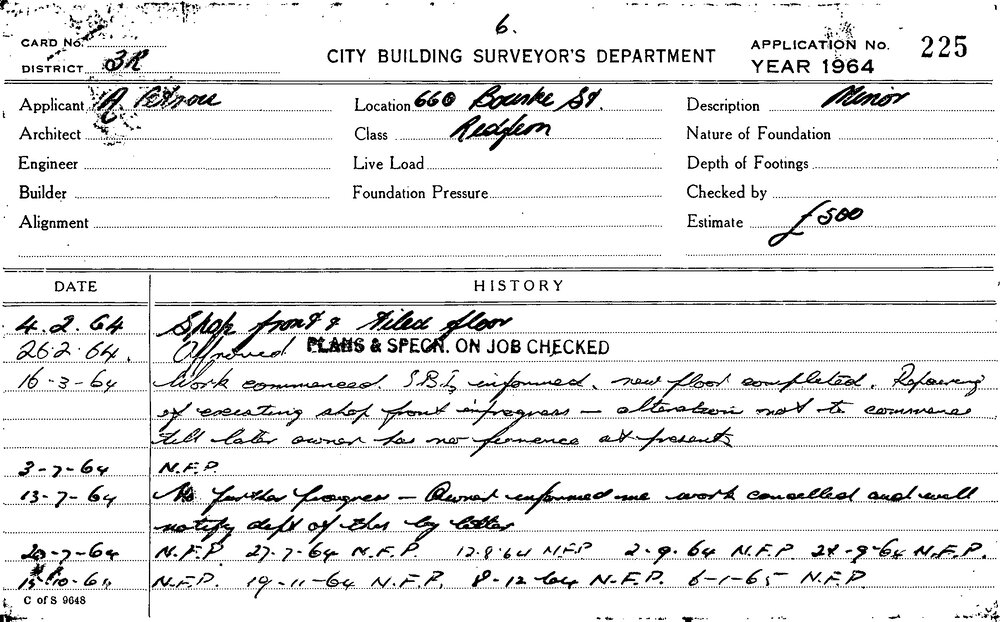 6.
CARD No.
DISTRICT 3R
CITY BUILDING SURVEYOR'S DEPARTMENT
APPLICATION No. 225
YEAR 1964
Applicant A Petrou Location 660 Bourke St Description Minor
Architect Class Redfern Nature of Foundation
Engineer Live Load Depth of Footings
Builder Foundation Pressure Checked by
Alignment Estimate £500
DATE HISTORY
4.2.64 Shop front & tiled floor
26.2.64. Approved PLANS & SPECN. ON JOB CHECKED
16-3-64 Work commenced. informed. new floor completed. Repairing
of existing shop front in progress — alteration not to commence
till later owner has no finance at present
3-7-64 N.F.P.
13-7-64 No further progress — Owner informed me work cancelled and will
notify dept of this by letter
-7-64 N.F.P 27-7-64 N.F.P. 12.8.64 N.F.P 2-9.64 N.F.P. 28-9-64 N.F.P.
-10-64 N.F.P. 19-11-64 N.F.P. 8-12-64 N.F.P. 6-1-65 N.F.P
C of S 9648